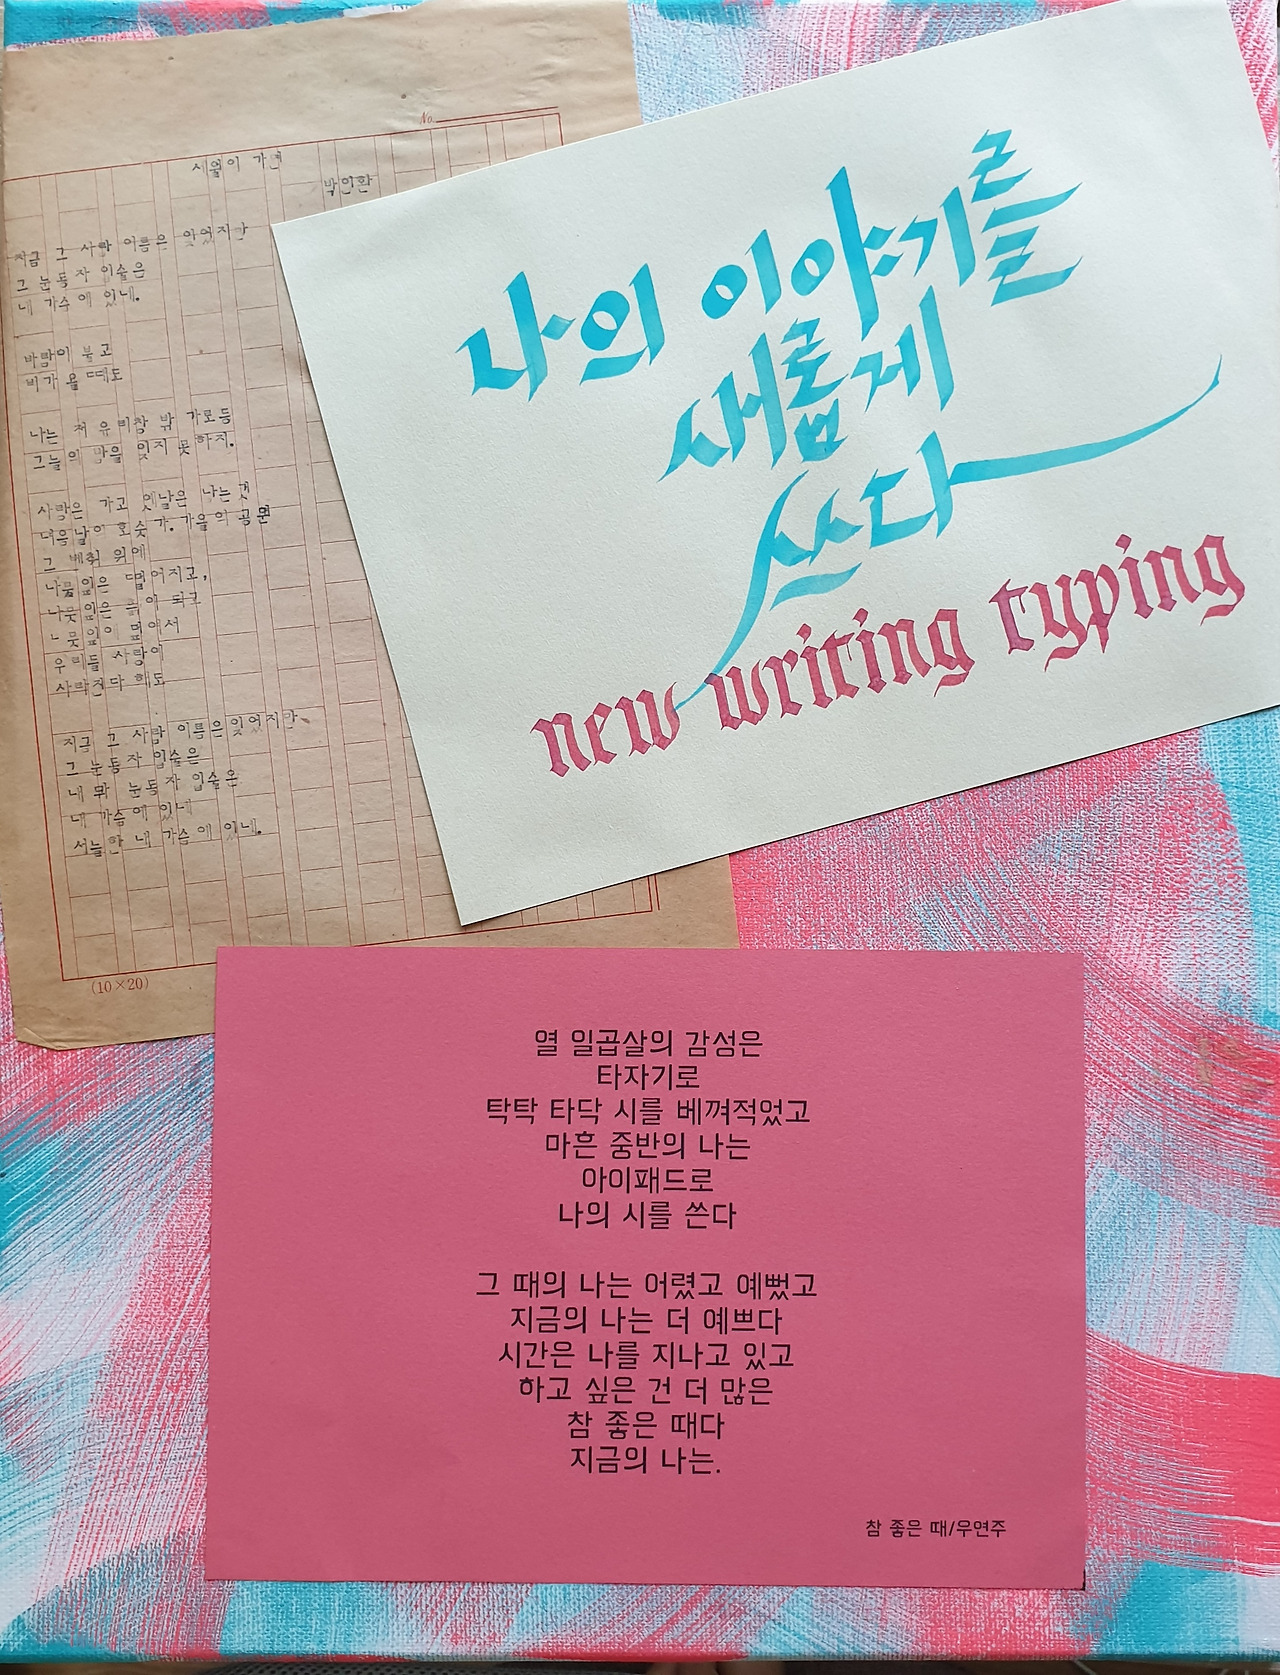 No.
세월이 가면
박인환
지금 그 사람 이름은 잊었지만
그 눈동자 입술은
내 가슴에 있네.
바람이 불고
비가 올 때도
나는 저 유리창 밖 가로등
그늘의 밤을 잊지 못하지.
사랑은 가고 옛날은 나는 것
여름날의 호숫가. 가을의 공원
그 벤취 위에
나뭇잎은 떨어지고,
나뭇잎은 흙이 되고
나뭇잎이 덮여서
우리들 사랑이
사라진다 해도
지금 그 사람 이름은 잊었지만
그 눈동자 입술은
내 눈동자 입술은
내 가슴에 있네
서늘한 내 가슴에 있네.
(10×20)
나의 이야기를
새롭게
쓰다
new writing typing
열 일곱살의 감성은
타자기로
탁탁 타닥 시를 베껴적었고
마흔 중반의 나는
아이패드로
나의 시를 쓴다
그 때의 나는 어렸고 예뻤고
지금의 나는 더 예쁘다
시간은 나를 지나고 있고
하고 싶은 건 더 많은
참 좋은 때다
지금의 나는.
참 좋은 때/우연주